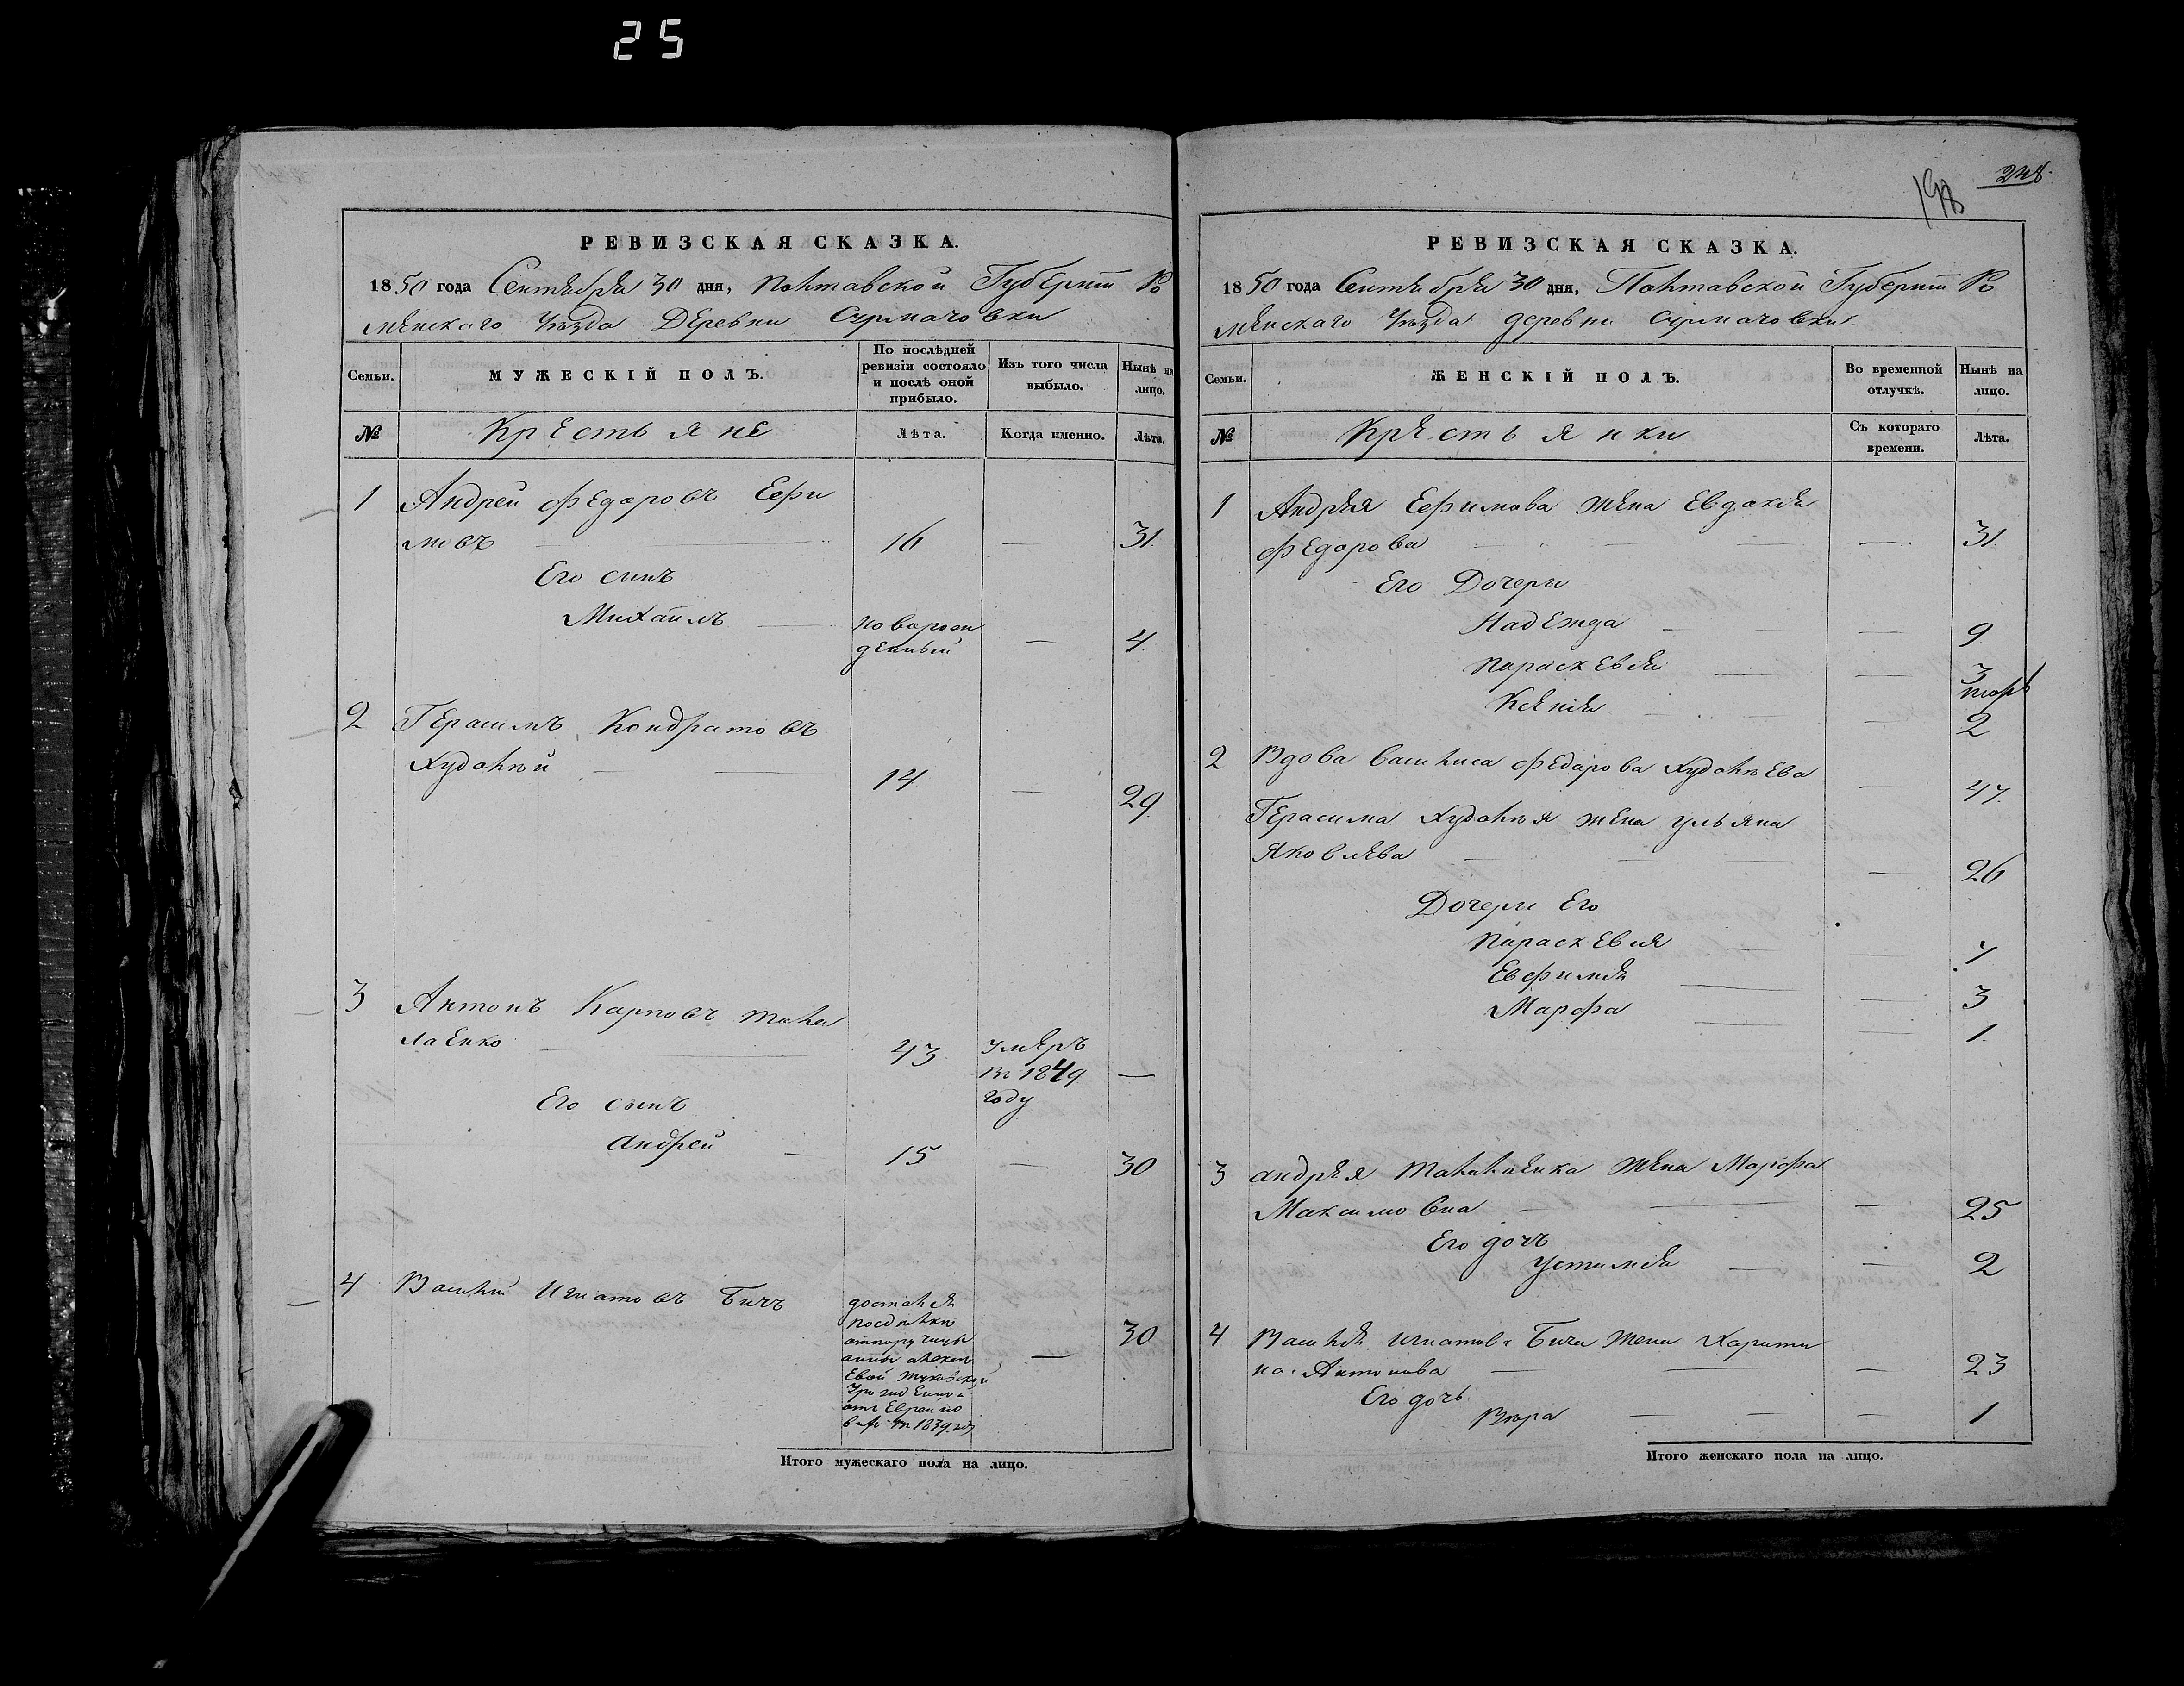 25
РЕВИЗСКАЯ СКАЗКА.
1850 года Сентября 30 дня, Полтавской Губернiи Ро
менскаго Уезда Деревни Сурмачовки
Семьи.
МУЖЕСКІЙ ПОЛЪ.
По послѣдней ревизіи состояло и послѣ оной прибыло.
Изъ того числа выбыло.
Нынѣ на лицо.
№
Крестьяне
Лѣта.
Когда именно.
Лѣта.
1 Андрей Федоровъ Ефи
мовъ 16 — 31.
Его синъ
Михаилъ новорож
денный — 4.
2 Герасимъ Кондратовъ
Худолѣй 14 — 29.
3 Антонъ Карповъ
лаенко 43 умеръ
въ 1849 —
году
Его сынъ
Андрей 15 — 30
4 Василий Игнатовъ Бичъ 30
достался
Итого мужескаго пола на лицо.
248.
РЕВИЗСКАЯ СКАЗКА.
1850 года Сентября 30 дня, Полтавской Губернiи Ро
менскаго Уезда деревни Сурмачовки.
Семьи.
ЖЕНСКІЙ ПОЛЪ.
Во временной отлучкѣ.
Нынѣ на лицо.
№
Крестьянки
Съ котораго времени.
Лѣта.
1 Андрея Ефимова жена Евдокия
Федорова — 31.
Его Дочери
Надежда — 9.
Параскевия — 3
Ксения — 2
2 Вдова Василиса Федорова Худолѣева — 47.
Герасима Худолѣя жена Ульяна
Яковлева — 26
Дочери Его
Параскевия — 7
Евфимия — 3
Марфа — 1.
3 Андрея жена Марфа
Максимовна — 25
Его дочъ
Устимия — 2
4 Василия Игнатова Бича жена Харити
на Антонова — 23
Его дочь
Вѣра — 1
Итого женскаго пола на лицо.